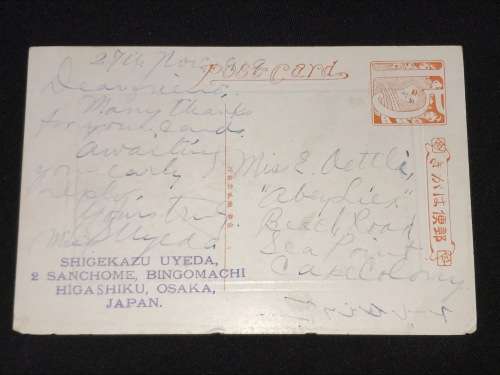 27th Nov.
Post Card.
Dear friend,
Many thanks
for your card.
Awaiting
your early
reply.
Yours truly
Uyeda
SHIGEKAZU UYEDA,
2 SANCHOME, BINGOMACHI
HIGASHIKU, OSAKA,
JAPAN.
Miss E. Oettli,
Beach Road
Sea Point
Cape Colony
きがは便郵